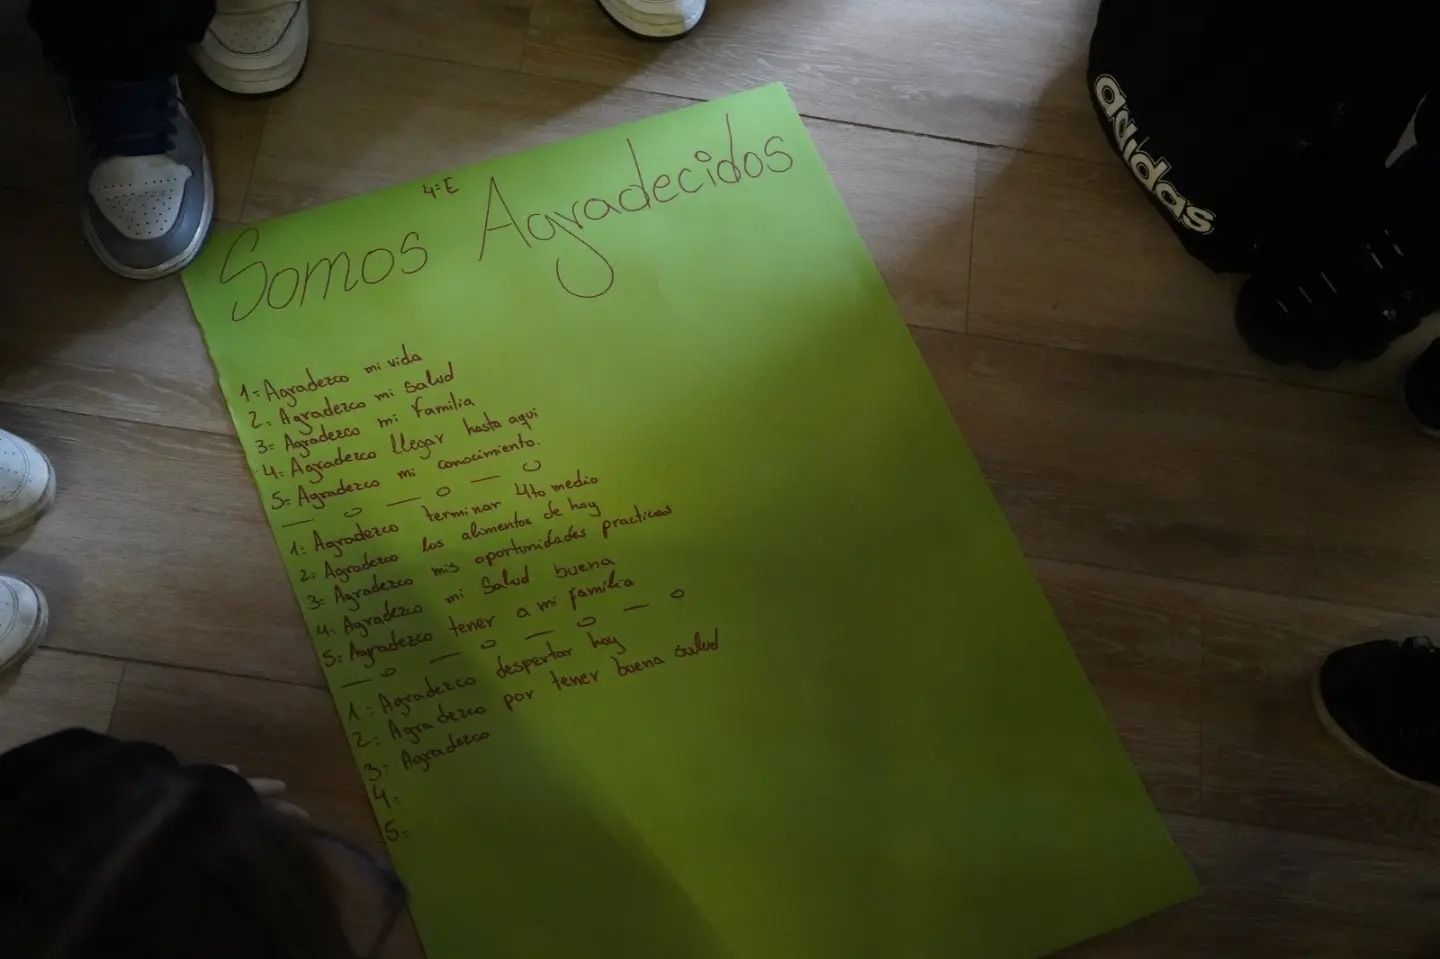 4=E
Somos Agradecidos
1= Agradezco mi vida
2= Agradezco mi salud
3= Agradezco mi Familia
4= Agradezco llegar hasta aqui
5= Agradezco mi conocimiento.
1= Agradezco terminar 4to medio
2= Agradezco los alimentos de hoy
3= Agradezco mis oportunidades practicas
4= Agradezco mi Salud buena
5= Agradezco tener a mi familia
1= Agradezco despertar hoy
2= Agradezco por tener buena salud
3= Agradezco
4=
5=
adidas